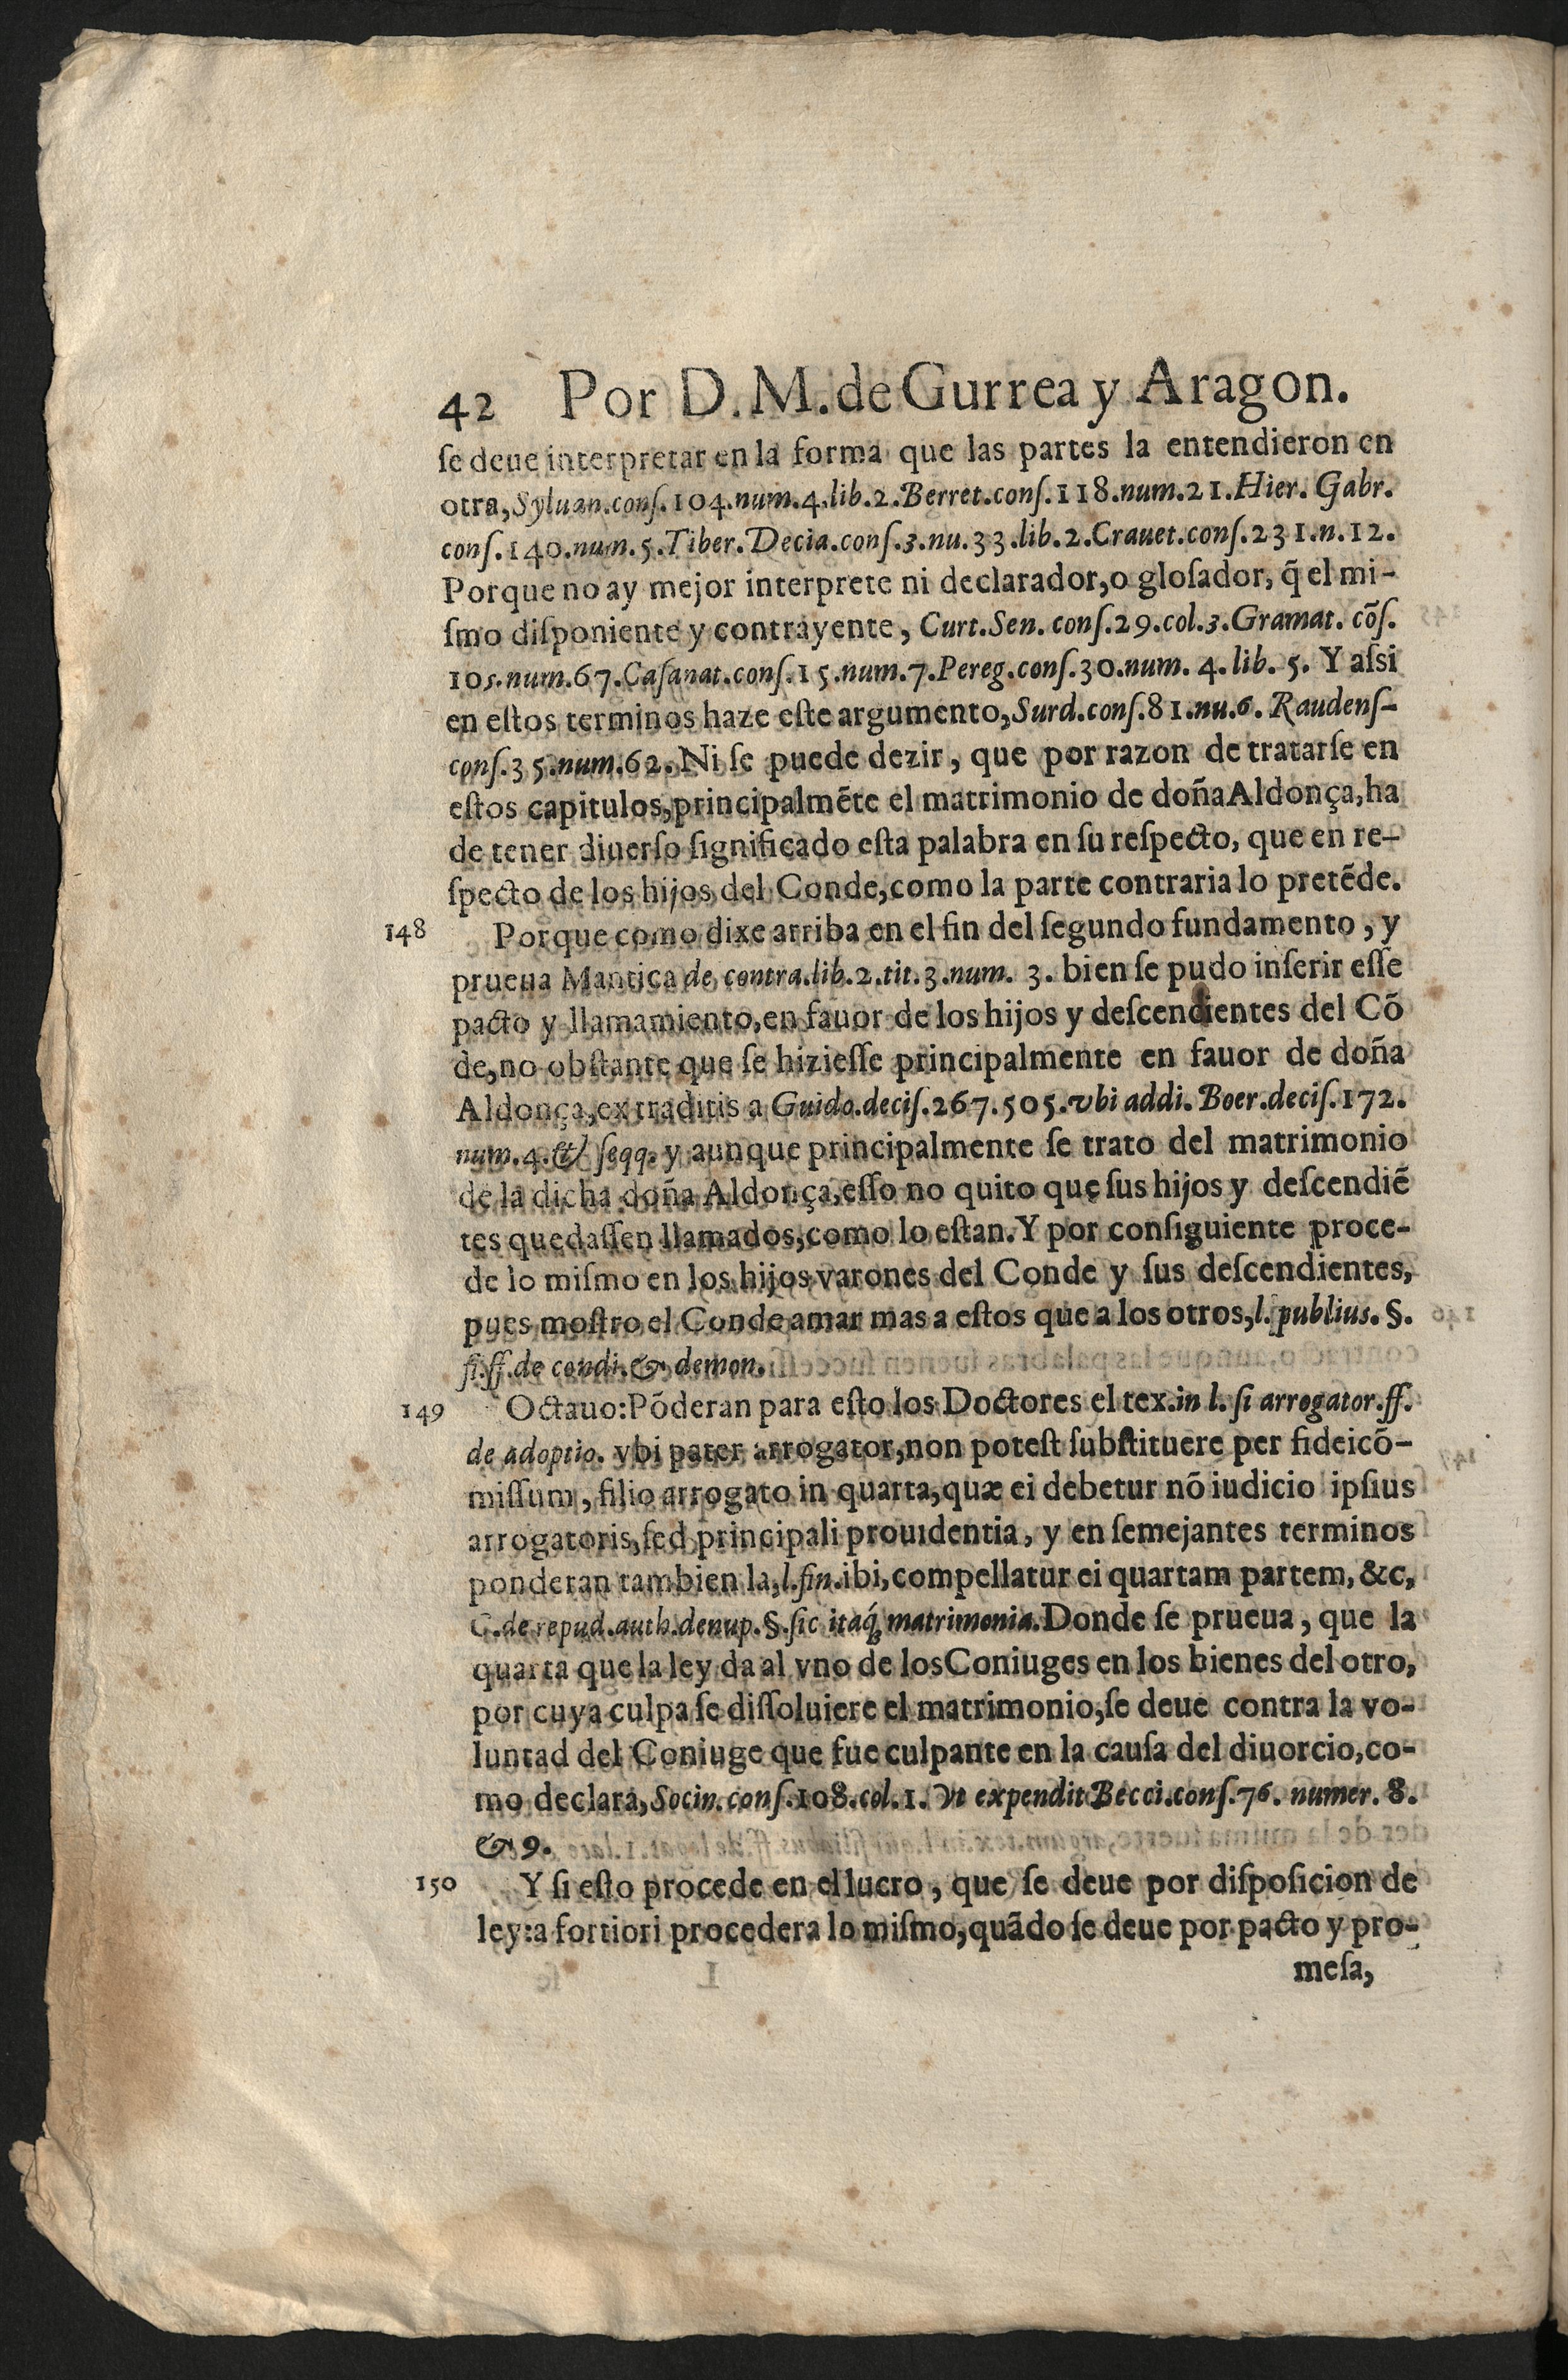 42 Por D. M. de Gurrea y Aragon.
ſe deue interpretar en la forma que las partes la entendieron en
otra, Syluan.conſ.104.num.4.lib.2.Berret.conſ.118.num.21.Hier. Gabr.
conſ.140.num.5.Tiber.Decia.conſ.3.nu.33.lib.2.Crauet.conſ.231.n.12.
Porque no ay mejor interprete ni declarador, o gloſador, q̃ el mi-
ſmo diſponiente y contrayente, Curt.Sen. conſ.29.col.3.Gramat. cõſ.
105.num.67.Caſanat.conſ.15.num.7.Pereg.conſ.30.num. 4. lib. 5. Y aſsi
en eſtos terminos haze eſte argumento, Surd.conſ.81.nu.6. Raudenſ-
conſ.35.num.62. Ni ſe puede dezir, que por razon de tratarſe en
eſtos capitulos, principalmẽte el matrimonio de doña Aldonça, ha
de tener diuerſo ſignificado eſta palabra en ſu reſpecto, que en re-
ſpecto de los hijos del Conde, como la parte contraria lo pretẽde.
148 Porque como dixe arriba en el fin del ſegundo fundamento, y
prueua Mantica de contra.lib.2.tit.3.num. 3. bien ſe pudo inſerir eſſe
pacto y llamamiento, en fauor de los hijos y deſcendientes del Cõ
de, no obſtante que ſe hizieſſe principalmente en fauor de doña
Aldonça, ex traditis a Guido.deciſ.267.505.vbi addi. Boer.deciſ.172.
num.4.& ſeqq. y aunque principalmente ſe trato del matrimonio
de la dicha doña Aldonça, eſſo no quito que ſus hijos y deſcendiẽ
tes quedaſſen llamados, como lo eſtan. Y por conſiguiente proce-
de lo miſmo en los hijos varones del Conde y ſus deſcendientes,
pues moſtro el Conde amar mas a eſtos que a los otros, l. publius. §.
ſi.ff.de condi.& demon.
149 Octauo: Põderan para eſto los Doctores el tex.in l. ſi arrogator.ff.
de adoptio. vbi pater arrogator, non poteſt ſubſtituere per fideicõ-
miſſum, filio arrogato in quarta, quæ ei debetur nõ iudicio ipſius
arrogatoris, ſed principali prouidentia, y en ſemejantes terminos
ponderan tambien la, l.fin.ibi, compellatur ei quartam partem, &c,
C.de repud.auth.denup.§.ſic itaq́; matrimonia. Donde ſe prueua, que la
quarta que la ley da al vno de los Coniuges en los bienes del otro,
por cuya culpa ſe diſſoluiere el matrimonio, ſe deue contra la vo-
luntad del Coniuge que fue culpante en la cauſa del diuorcio, co-
mo declara, Socin.conſ.108.col.1. Vt expendit Becci.conſ.76. numer. 8.
& 9.
150 Y ſi eſto procede en el lucro, que ſe deue por diſpoſicion de
ley: a fortiori procedera lo miſmo, quãdo ſe deue por pacto y pro-
meſa,